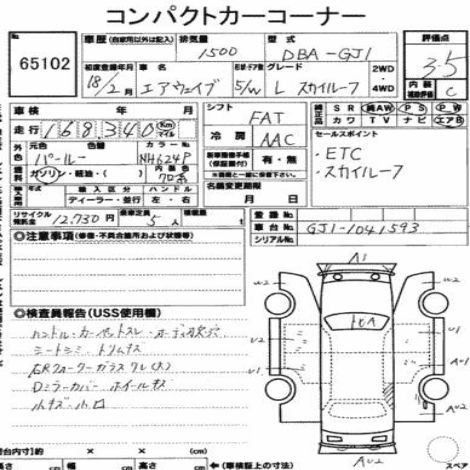 コンパクトカーコーナー
65102
車歴(自家用以外は記入)
排気量
1500
型式
DBA-GJ1
評価点
3.5
初度登録年月
18/2月
車名
エアウェイブ
形状・ドア数
5/W
グレード
L スカイルーフ
2WD
4WD
内装
補助評価
C
車検 年 月
走行 168340 Km マイル
シフト
FAT
冷房
AAC
純正品
SR 純AW PS PW
カワ TV ナビ エアB
外色
元色
パールー
色替
カラーNo.
NH624P
燃料
ガソリン・軽油・( )
内色
70系
有・無
セールスポイント
・ETC
・スカイルーフ
輸入車
年式
輸入区分
ディーラー・並行
ハンドル
左・右
名義変更期限
月 日
リサイクル預託金
12,730円
乗車定員
5人
積載量
t
登録No.
車台No.
GJ1-1041593
シリアルNo.
◎注意事項(修復・不具合箇所および状態等)
◎検査員報告(USS使用欄)
ハンドル・カーペットスレ・オーディオ欠穴
シートシミ・トリムキズ
Dミラーカバー ホイールキズ
小キズ・小凹
A1
U2
U1
A2
荷台内寸) × × (cm)
幅 (cm) 高さ (cm)
←(車検証上の寸法)
スペア